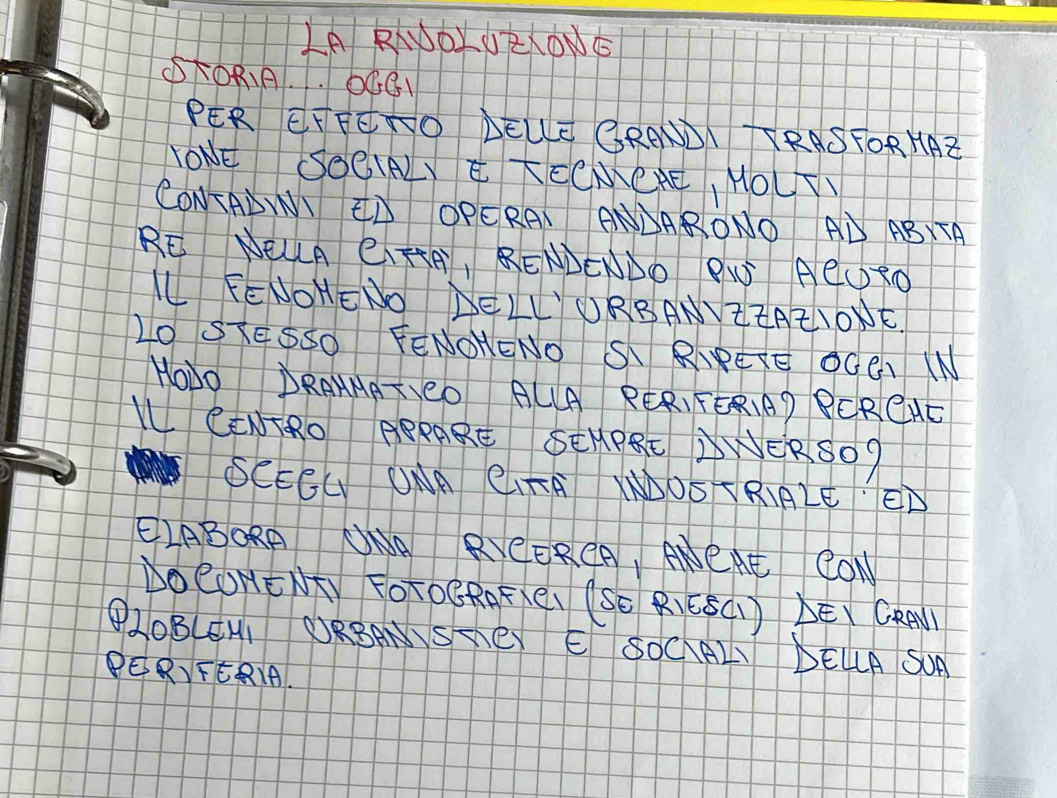 LA RIVOLUZIONE
STORIA... OGGI
PER EFFETTO DELLE GRANDI TRASFORMAZ
IONE SOCIALI E TECNICHE, MOLTI
CONTADINI ED OPERAI ANDARONO AD ABITA
RE NELLA CITTA', RENDENDO PIÙ ACUTO
IL FENOMENO DELL'URBANIZZAZIONE.
LO STESSO FENOMENO SI RIPETE OGGI IN
MODO DRAMMATICO ALLA PERIFERIA? PERCHE
IL CENTRO APPARE SEMPRE DIVERSO?
SCEGLI UNA CITTÀ INDUSTRIALE ED
ELABORA UNA RICERCA, ANCHE CON
DOCUMENTI FOTOGRAFICI (SE RIESCI) DEI GRAVI
PLOBLEMI URBANISTICI E SOCIALI DELLA SUA
PERIFERIA.